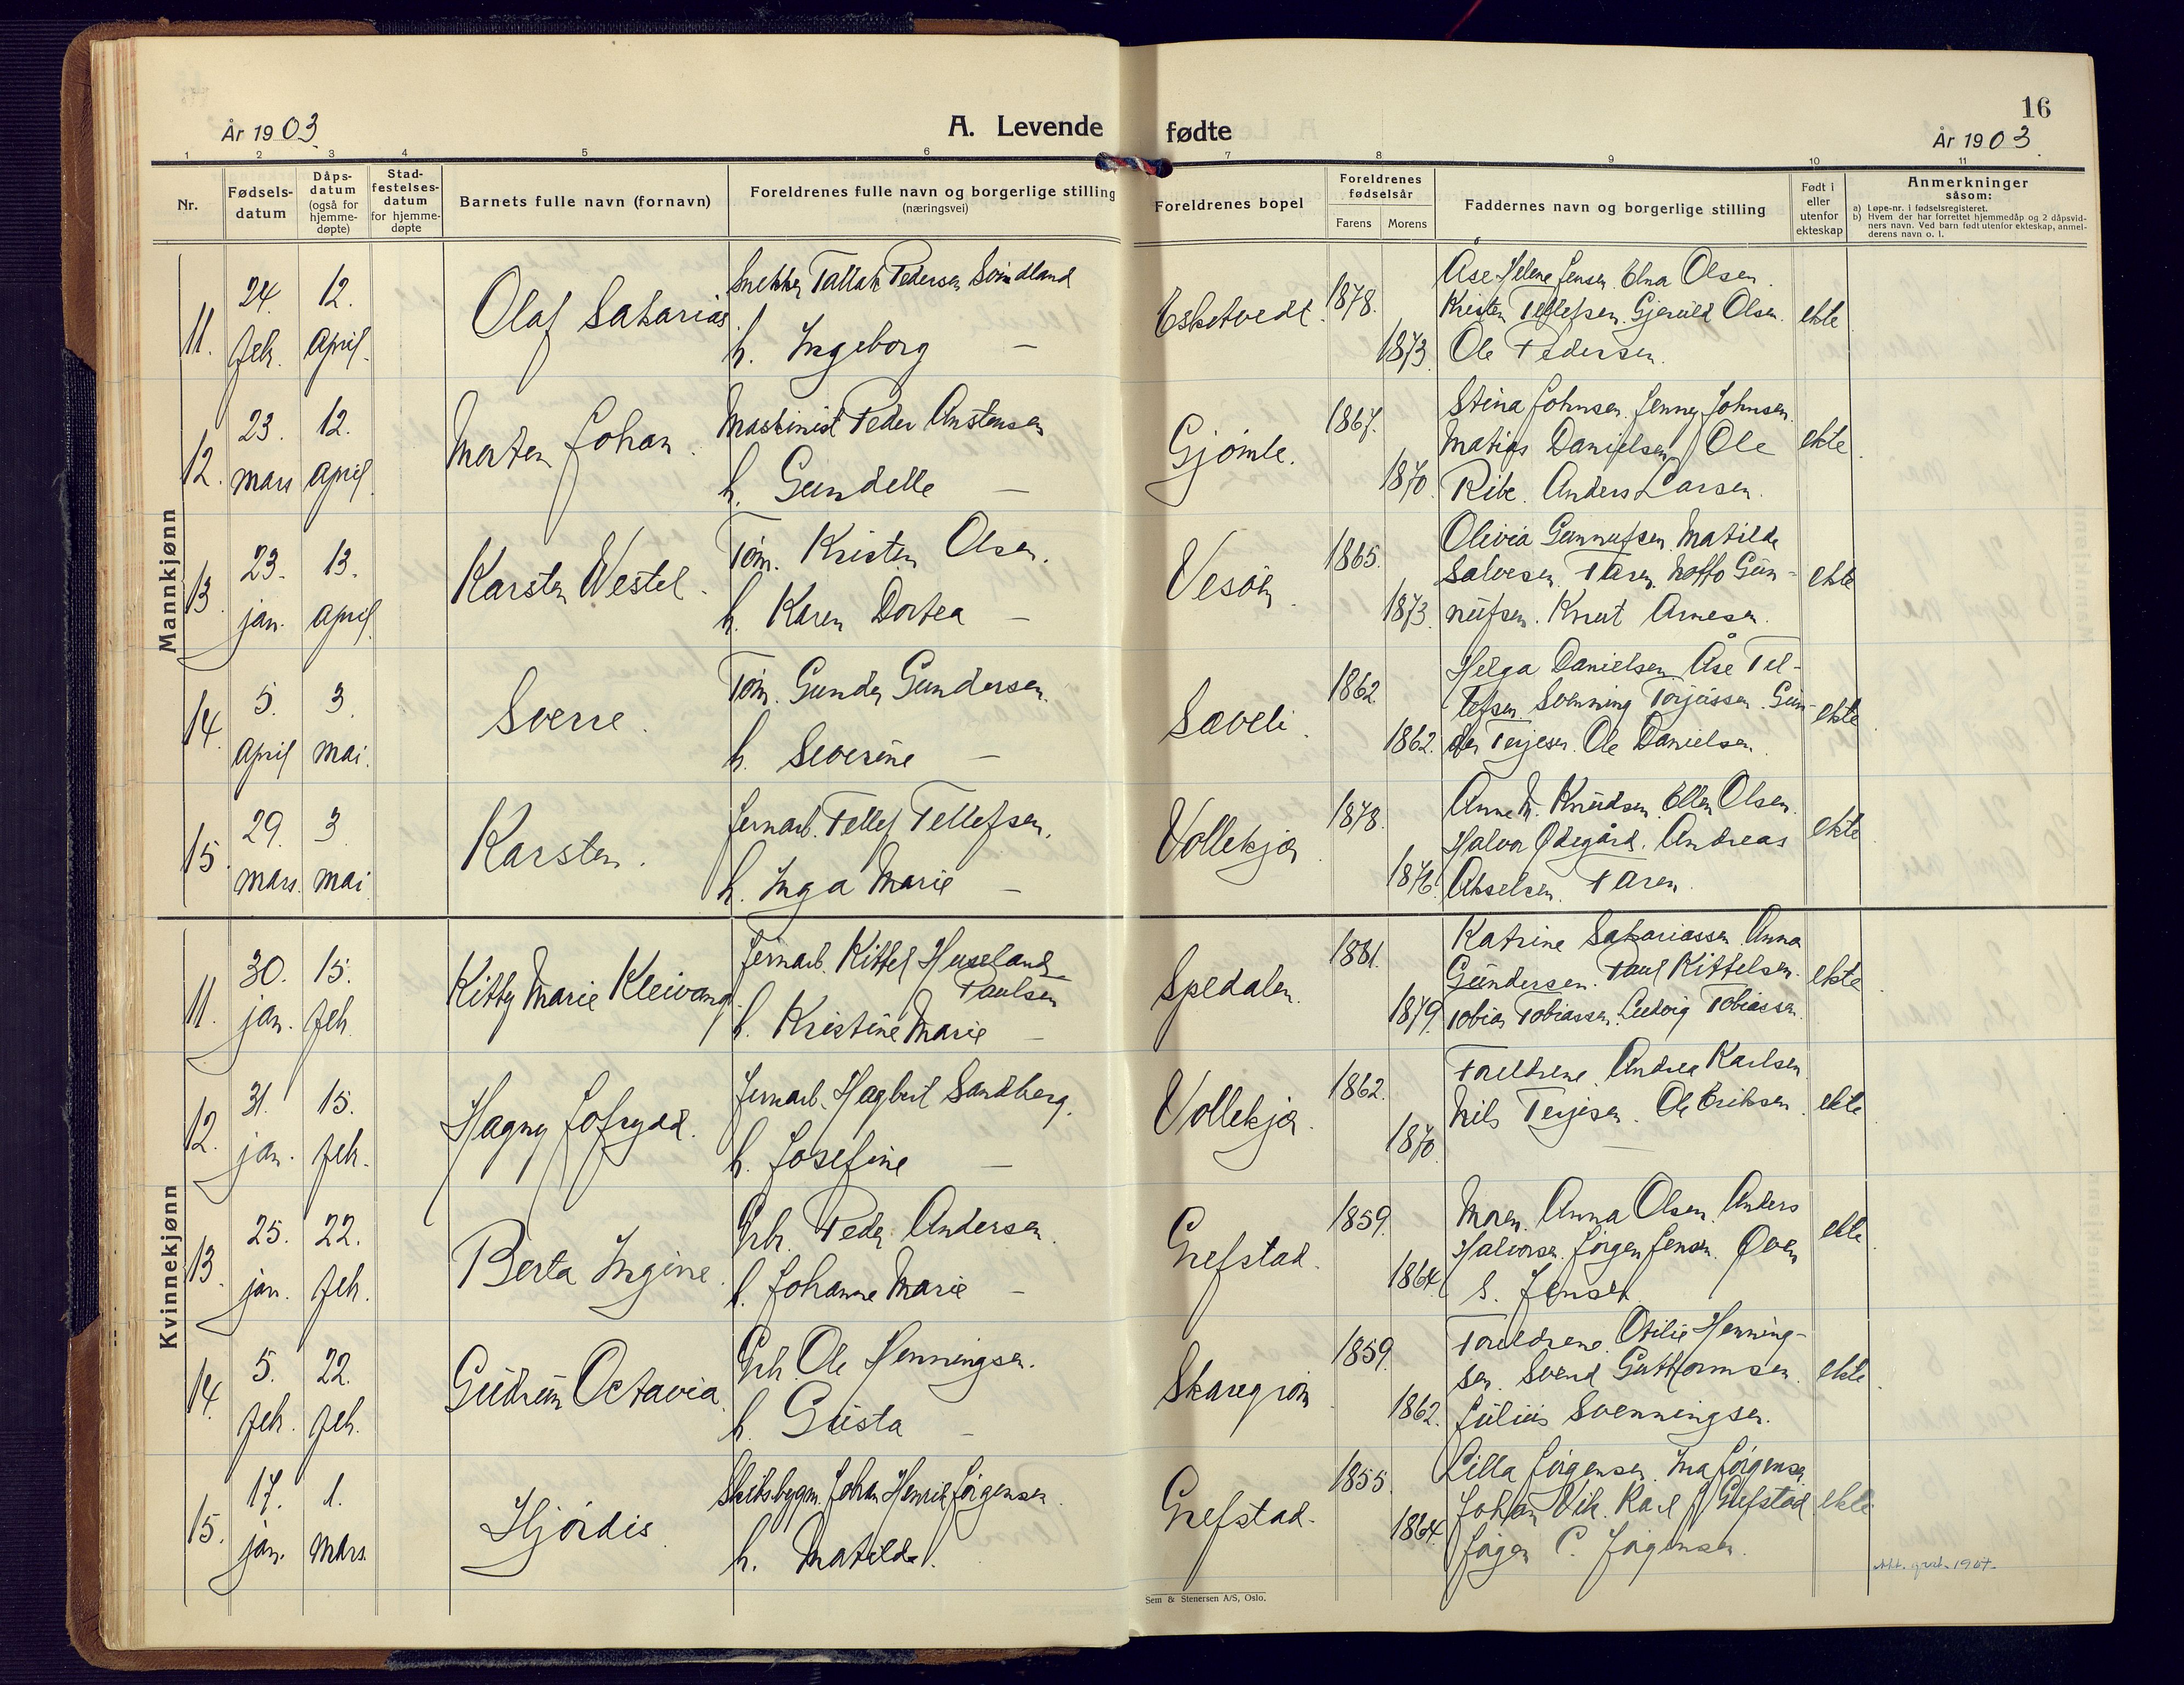 16
År 1903.
A. Levende fødte
År 1903.
1 2 3 4 5 6 7 8 9 10 11
Nr.
Fødsels-datum
Dåps-datum (også for hjemme-døpte)
Stad-festelses-datum for hjemme-døpte
Barnets fulle navn (fornavn)
Foreldrenes fulle navn og borgerlige stilling (næringsvei)
Foreldrenes bopel
Foreldrenes fødselsår
Farens Morens
Faddernes navn og borgerlige stilling
Født i eller utenfor ekteskap
Anmerkninger såsom:
a) Løpe-nr. i fødselsregisteret.
b) Hvem der har forrettet hjemmedåp og 2 dåpsvid-
ners navn. Ved barn født utenfor ekteskap, anmel-
derens navn o. l.
Mannkjønn
11. 24. feb. 12. april. Olaf Sakarias.
Snekker Tallak Pedersen Svindland
h. Ingeborg —
Esketvedt. 1878. 1873.
Åse Helene Jensen. Elna Olsen.
Kristen Tellefsen. Gjeruld Olsen.
Ole Pedersen.
ekte
12. 23. mars 12. april Morten Johan.
Maskinist Peder Anstensen
h. Gundelle —
Gjømle. 1867. 1870.
Stina Johnsen. Jenny Johnsen.
Matias Danielsen. Ole
Ribe. Anders Larsen.
ekte
13. 23. jan. 13. april Karsten Westel.
Tøm. Kristen Olsen.
h. Karen Dortea —
Vesøen. 1865. 1873.
Olivia Gunnufsen. Matilde
Salvesen. Faren. Noffo Gun-
nufsen. Knut Arnesen.
ekte
14. 5. april 3. mai. Sverre.
Tøm. Gunder Gundersen.
h. Severine —
Saveli. 1862. 1862.
Helga Danielsen. Åse Tel-
lefsen. Svenning Torjussen. Gun-
der Terjesen. Ole Danielsen.
ekte
15. 29. mars. 3. mai Karsten.
Jernarb. Tellef Tellefsen.
h. Inga Marie —
Vollekjær. 1878. 1876.
Anne M. Knudsen. Ellen Olsen.
Halvor Ødegård. Andreas
Akselsen. Faren.
ekte
Kvinnekjønn
11. 30. jan. 15. feb. Kitty Marie Kleivang.
Jernarb. Kittel Huseland
Paulsen
h. Kristine Marie —
Spedalen. 1881. 1879.
Katrine Sakariassen. Anna
Gundersen. Paul Kittelsen.
Tobias Tobiassen. Ludvig Tobiassen.
ekte
12. 31. jan. 15. feb. Hagny Jofrydd.
Jernarb. Hagbert Sandberg.
h. Josefine —
Vollekjær. 1862. 1870.
Foreldrene. Andrea Karlsen
Nils Terjesen. Ole Eriksen.
ekte
13. 25. jan. 22. feb. Berta Ingine.
Grbr. Peder Andersen.
h. Johanne Marie —
Grefstad. 1859. 1864.
Moren. Anna Olsen. Anders
Halvorsen. Jørgen Jensen. Øven
S. Jensen.
ekte
14. 5. feb. 22. feb. Gudrun Octavia.
Grb. Ole Henningsen.
h. Gusta —
Skaregrøm. 1859. 1862.
Foreldrene. Otilie Henning-
sen. Svend Guttormsen.
Julius Svenningsen.
ekte
15. 17. jan. 1. mars. Hjørdis
Skibsbygm. Johan Henrik Jørgensen.
h. Matilde.
Grefstad. 1855. 1864.
Lilla Jørgensen. Ina Jørgensen
Johan Vik. Karl J. Grefstad
Jørgen C. Jørgensen.
ekte
Att. 1967.
Sem & Stenersen A/S, Oslo.